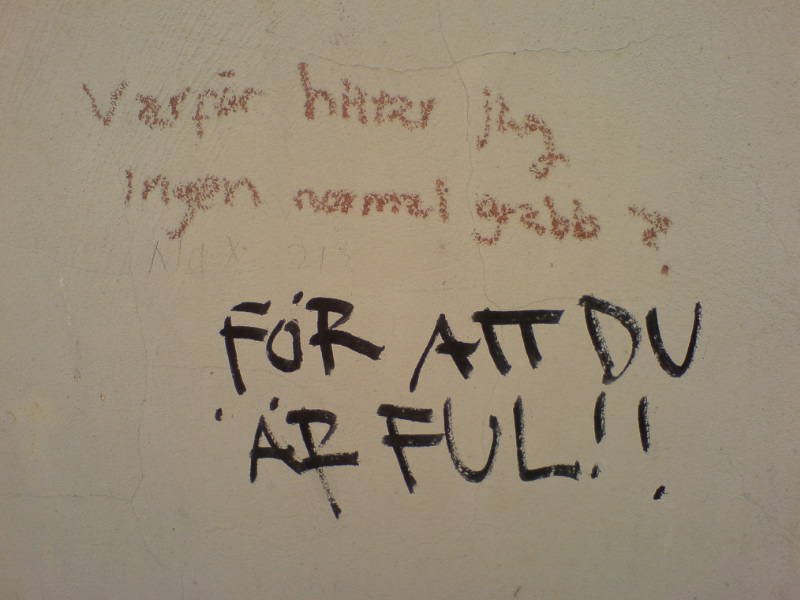 Varför hittar jag
ingen normal grabb?
Max 213
FÖR ATT DU
ÄR FUL!!